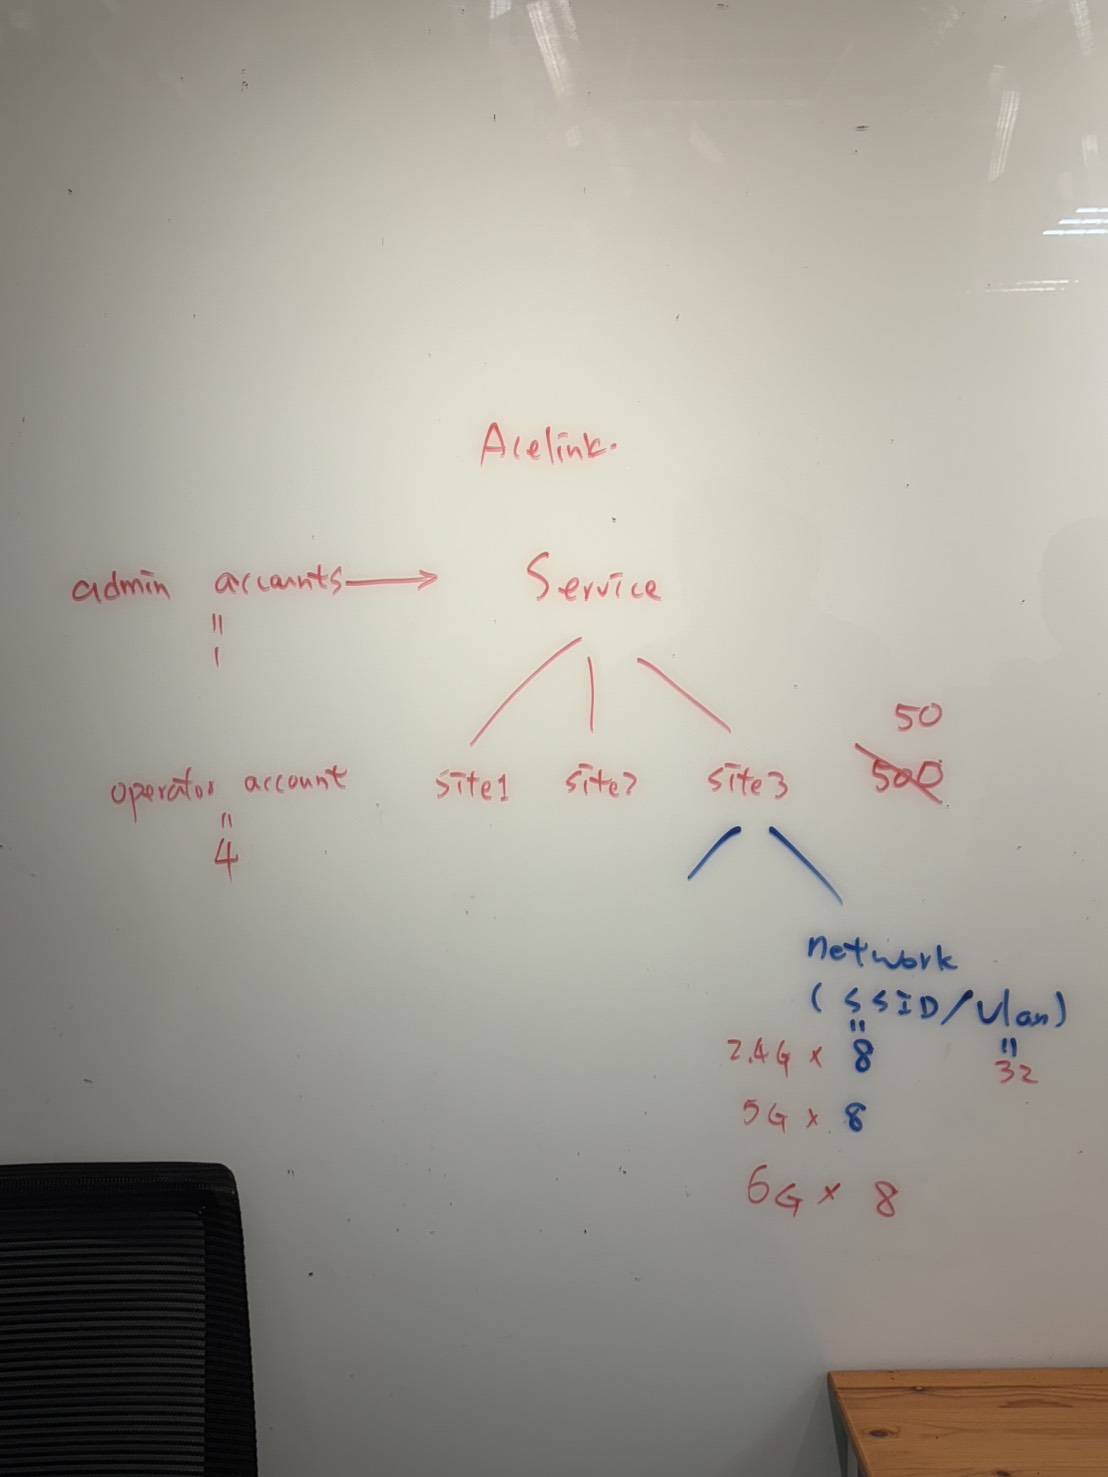 Acelink.
admin accounts → Service
"
1
50
operator account site1 site2 site3 500
"
4
network
(SSID/Vlan)
" "
2.4G x 8 32
5G x 8
6G x 8